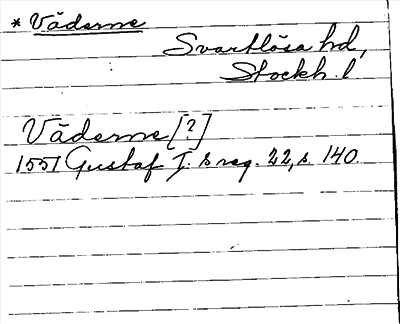 * Väderne
Svartlösa hd,
Stockh. l
Väderne [?]
1551 Gustaf I:s reg. 22, s. 140.